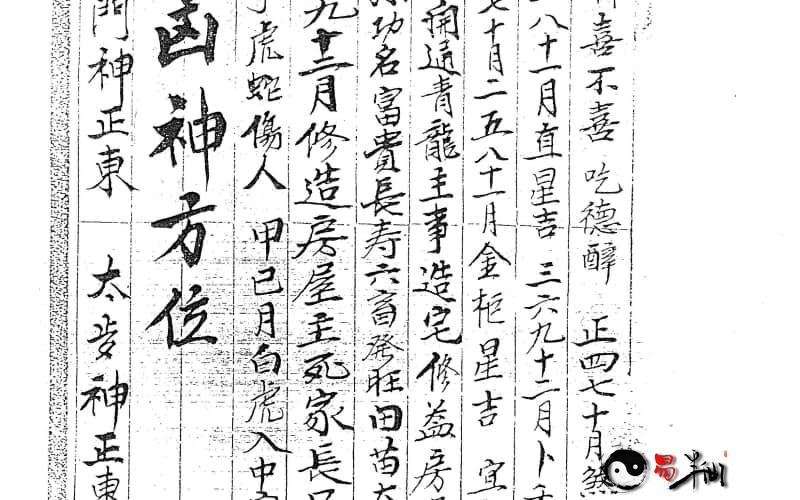 喜不喜 吃德醉 正四七十月煞
八十一月直星吉 三六九十二月卜
七十月二五八十一月金柜星吉 宜
開通青龍主事造宅修益房
功名富貴長寿六畜發旺田苗
九十二月修造房屋主死家長
虎蛇傷人 甲己月白虎入中
凶神方位
門神正東 太岁神正東
易